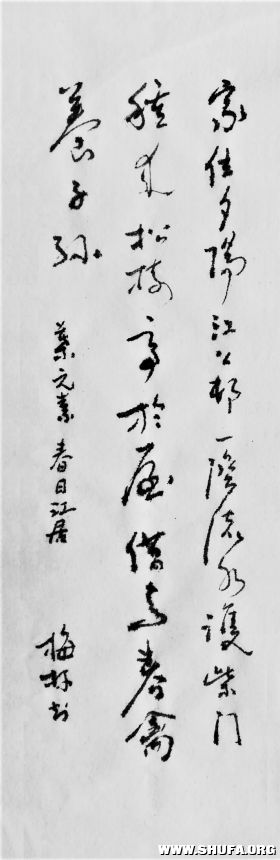 家住夕陽江上邨一流水護柴门
種来松樹高於屋借与春禽
養子孫
葉元素 春日江居
梅林书
WWW.SHUFA.ORG